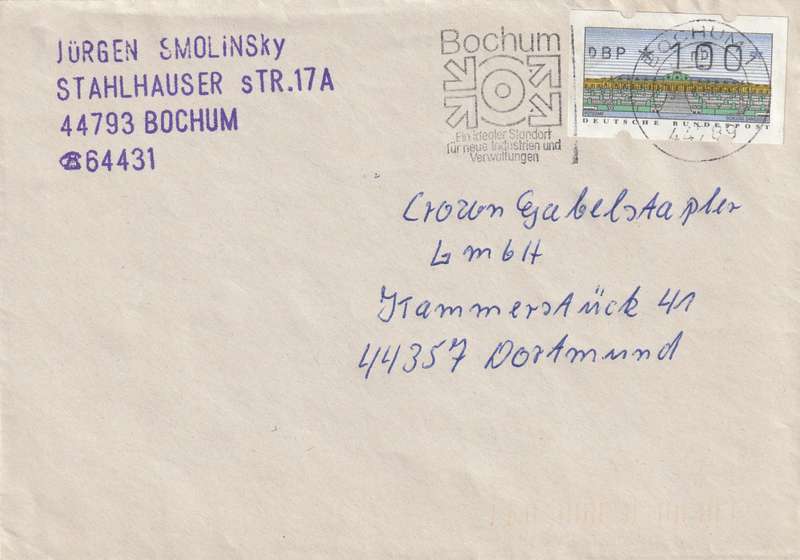 JÜRGEN SMOLiNSky
STAHLHAUSER sTR.17A
44793 BOCHUM
☎64431
Bochum
Ein idealer Standort
für neue Industrien und
Verwaltungen
DBP *100
DEUTSCHE BUNDESPOST
BOCHUM 1
44789
Crown Gabelstapler
GmbH
Kammerstück 41
44357 Dortmund